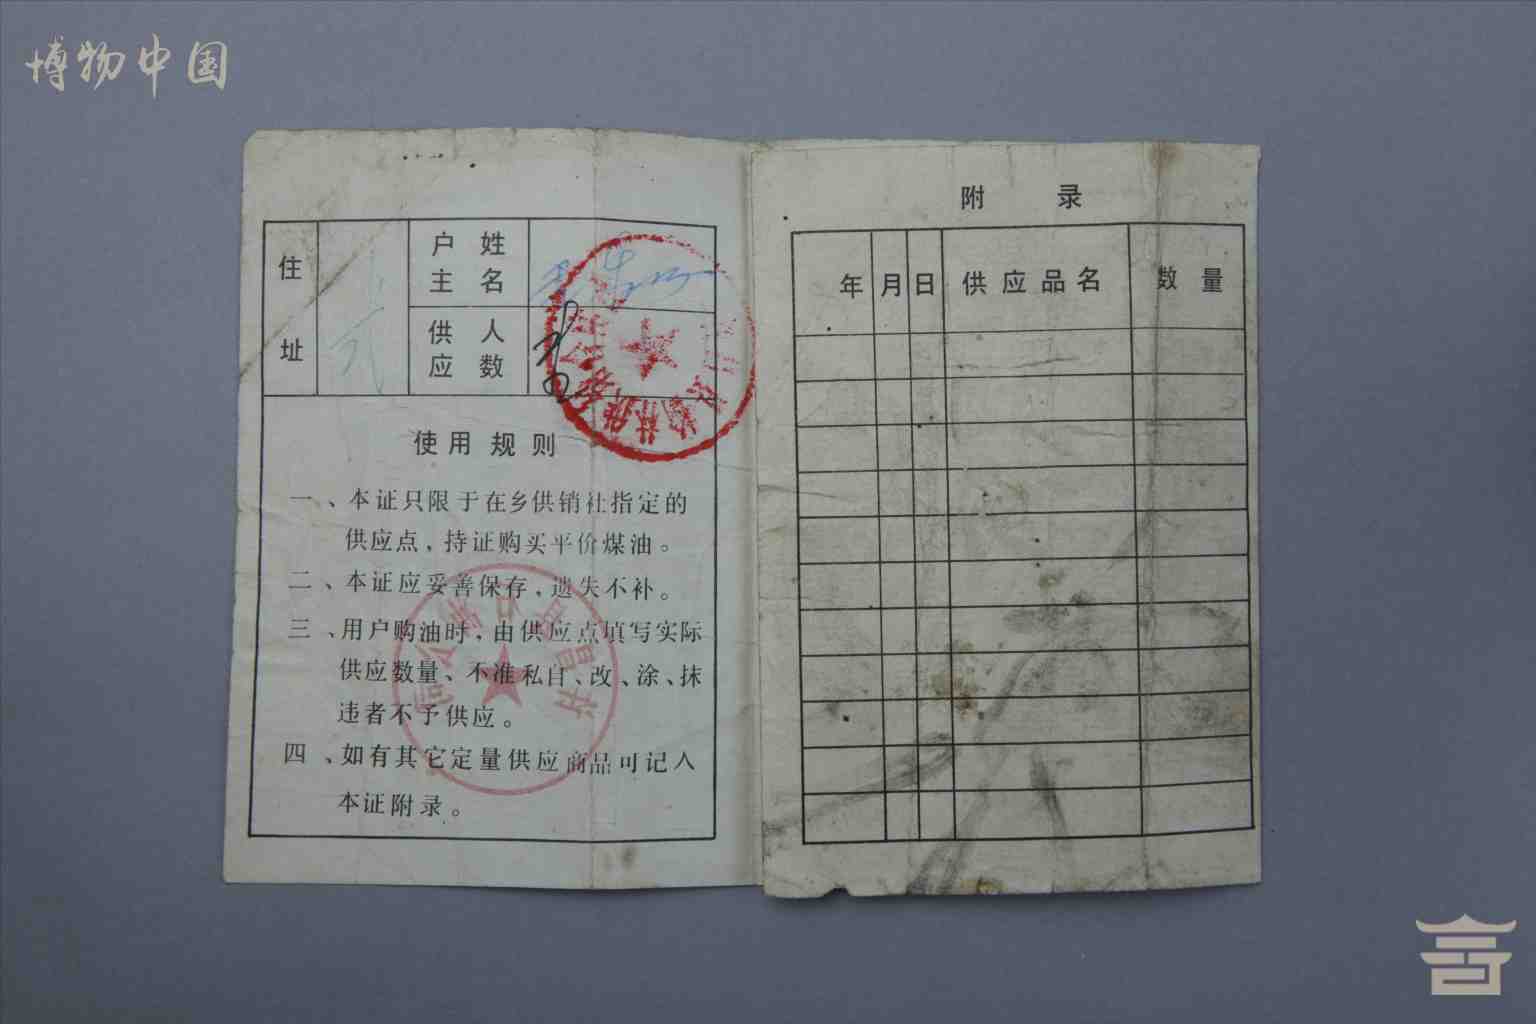 博物中国
住址
户主
姓名
供应
人数
使用规则
一、本证只限于在乡供销社指定的
供应点，持证购买平价煤油。
二、本证应妥善保存，遗失不补。
三、用户购油时，由供应点填写实际
供应数量、不准私自、改、涂、抹
违者不予供应。
四、如有其它定量供应商品可记入
本证附录。
附录
年 月 日 供应品名 数量